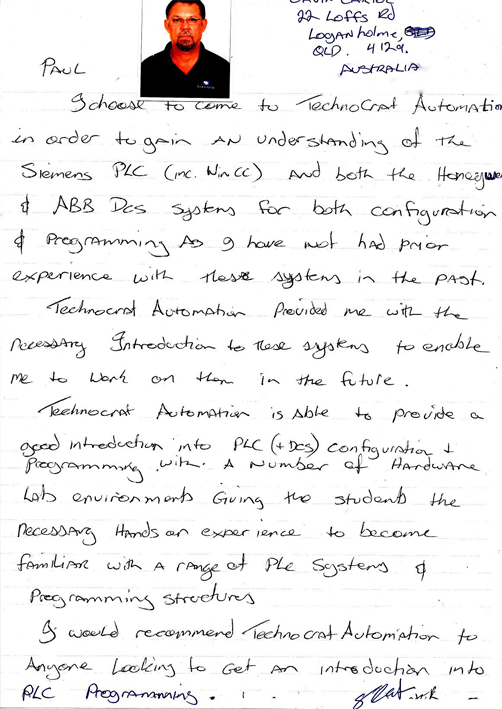 22 Loffs Rd
Loganholme,
QLD. 4129.
AUSTRALIA
PAUL
I choose to come to TechnoCrat Automation
in order to gain AN understanding of the
Siemens PLC (inc. WinCC) AND both the Honeywell
& ABB Dcs systems for both configuration
& Programming As I have not had prior
experience with these systems in the past.
Technocrat Automation Provided me with the
necessary Introduction to these systems to enable
me to work on them in the future.
Technocrat Automation is Able to provide a
good introduction into PLC (+Dcs) configuration +
Programming with. A Number of Hardware
Lab environments Giving the students the
necessary Hands on experience to become
familiar with a range of Plc Systems &
Programming structures
I would recommend Technocrat Automation to
Anyone Looking to Get An introduction into
PLC Programming.